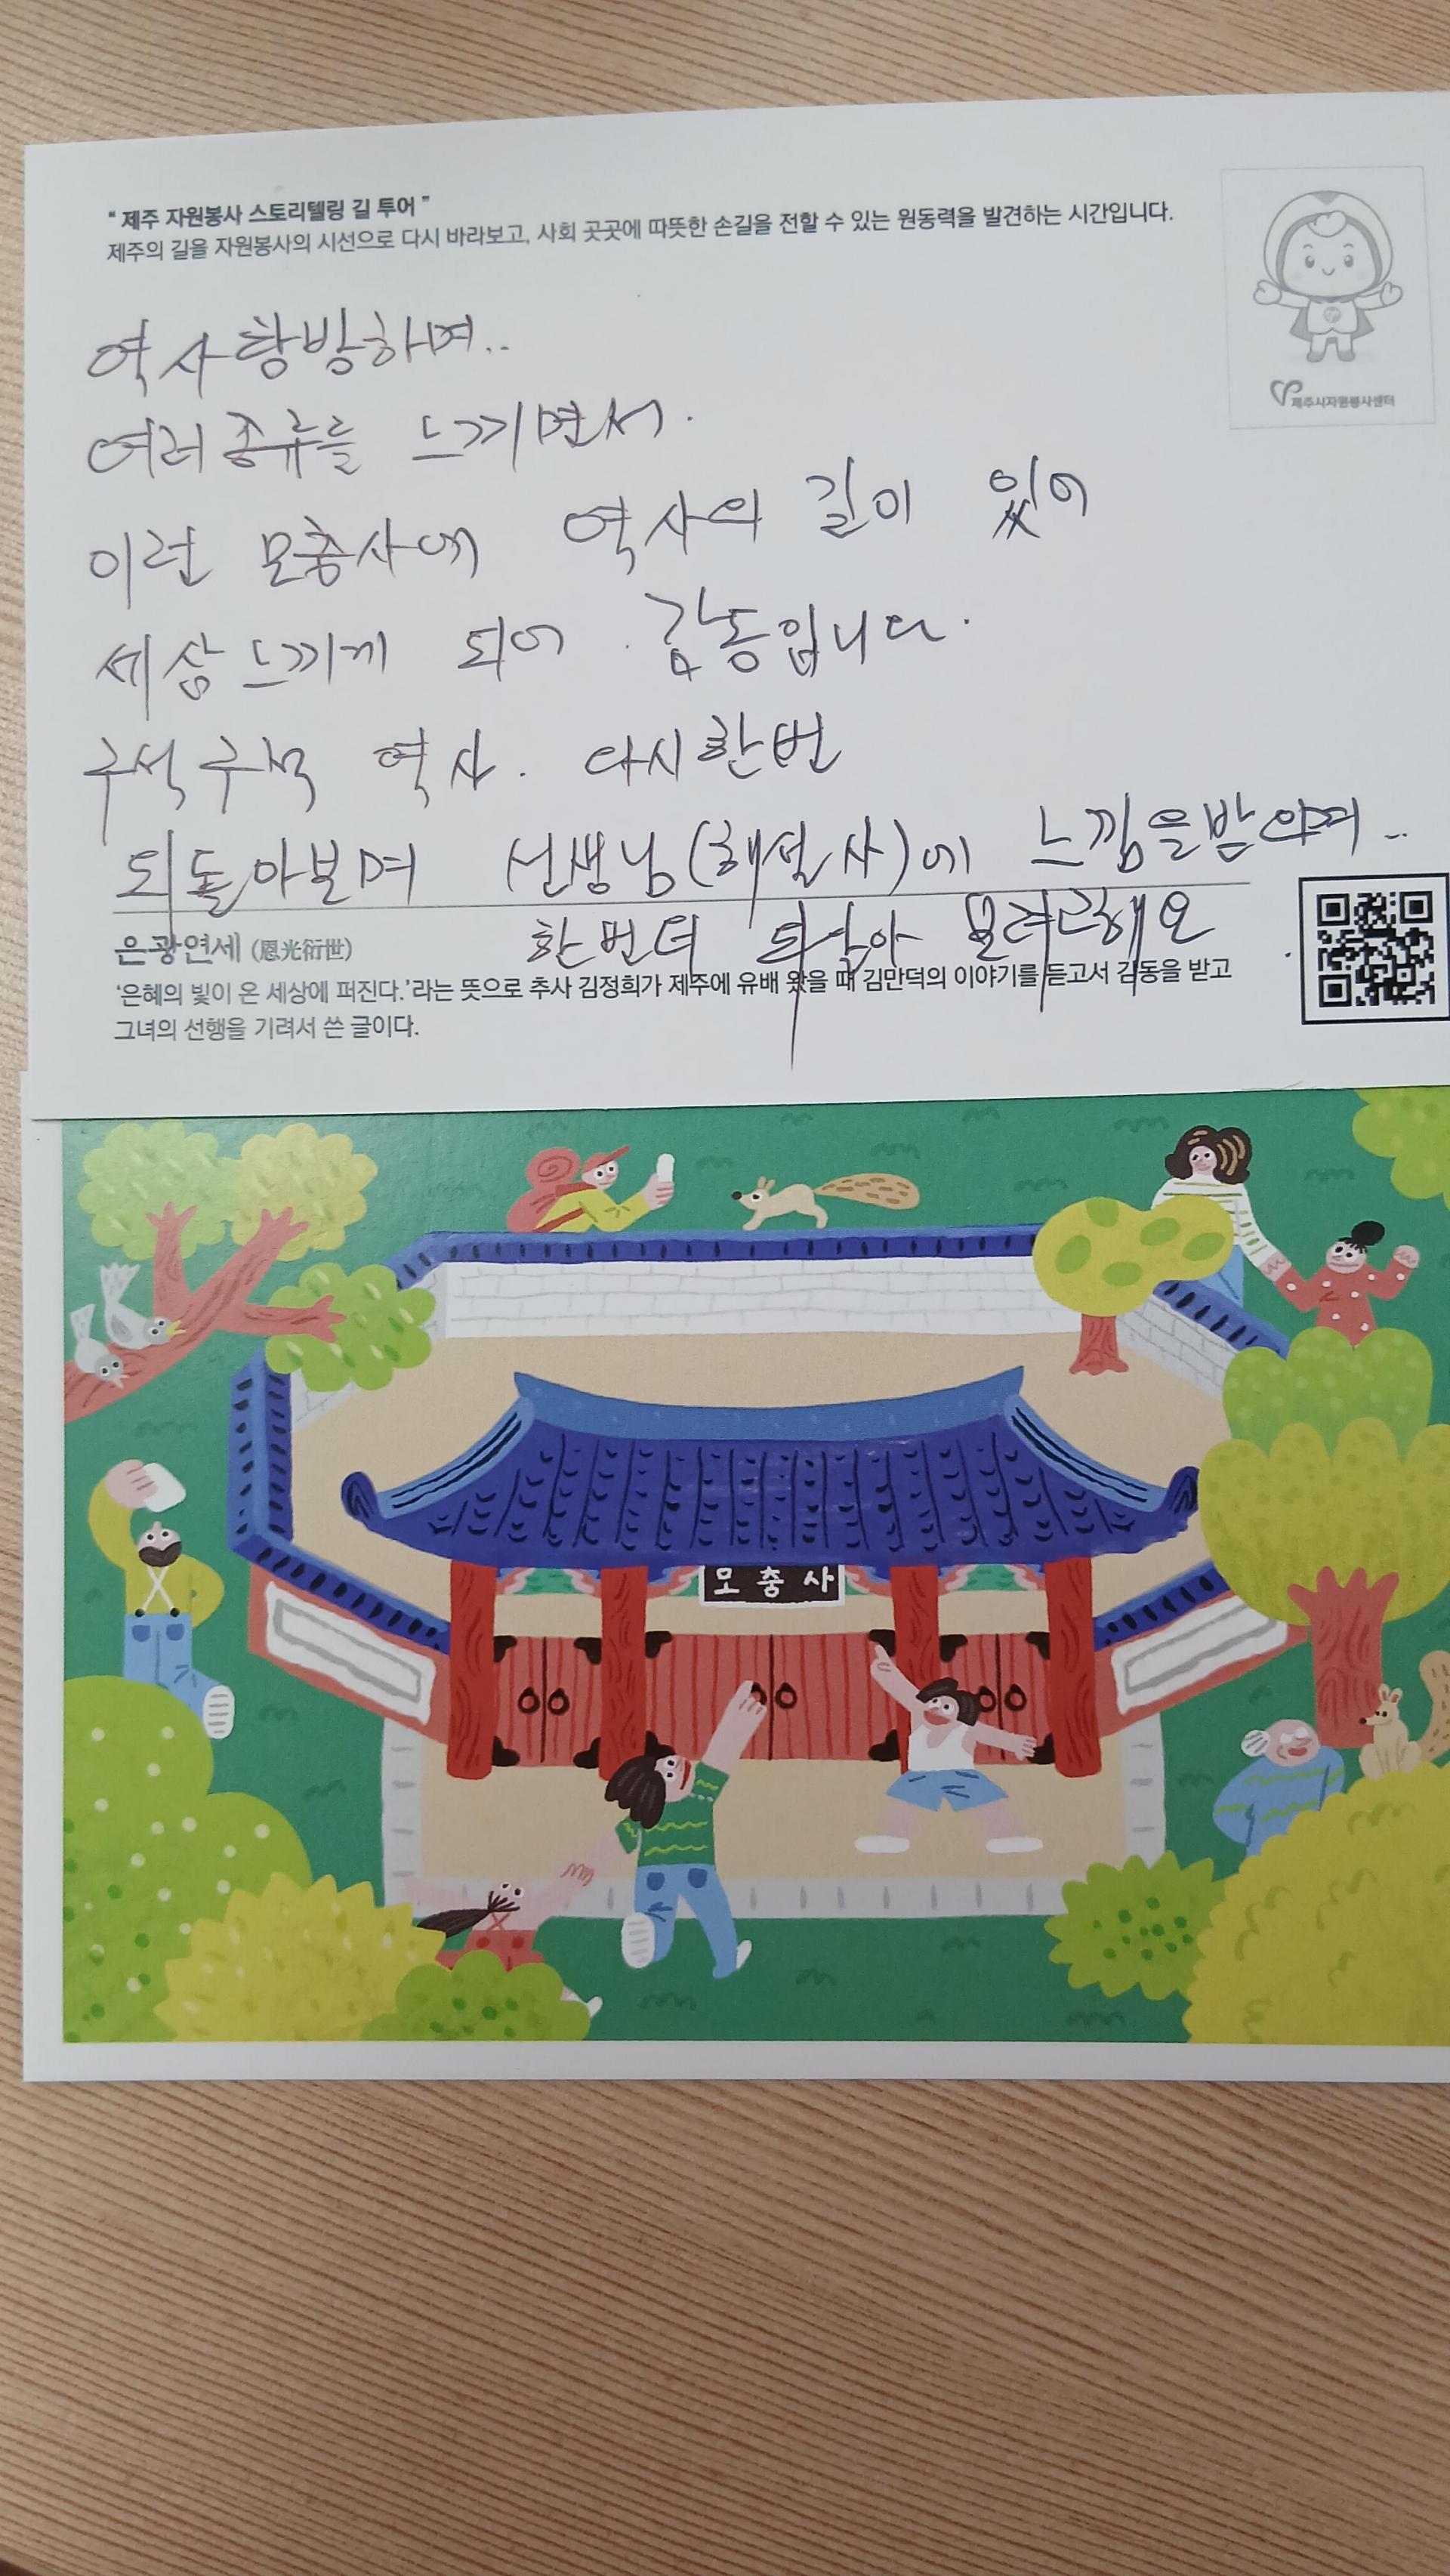 “ 제주 자원봉사 스토리텔링 길 투어 ”
제주의 길을 자원봉사의 시선으로 다시 바라보고, 사회 곳곳에 따뜻한 손길을 전할 수 있는 원동력을 발견하는 시간입니다.
제주시자원봉사센터
역사탐방하며..
여러종류를 느끼면서.
이런 모충사에 역사의 길이 있어
세상느끼게 되어. 감동입니다.
구석구석 역사. 다시한번
되돌아보며 선생님(해설사)에 느낌을받으며..
한번더
은광연세 (恩光衍世)
‘은혜의 빛이 온 세상에 퍼진다.’라는 뜻으로 추사 김정희가 제주에 유배 왔을 때 김만덕의 이야기를 듣고서 감동을 받고
그녀의 선행을 기려서 쓴 글이다.
모충사